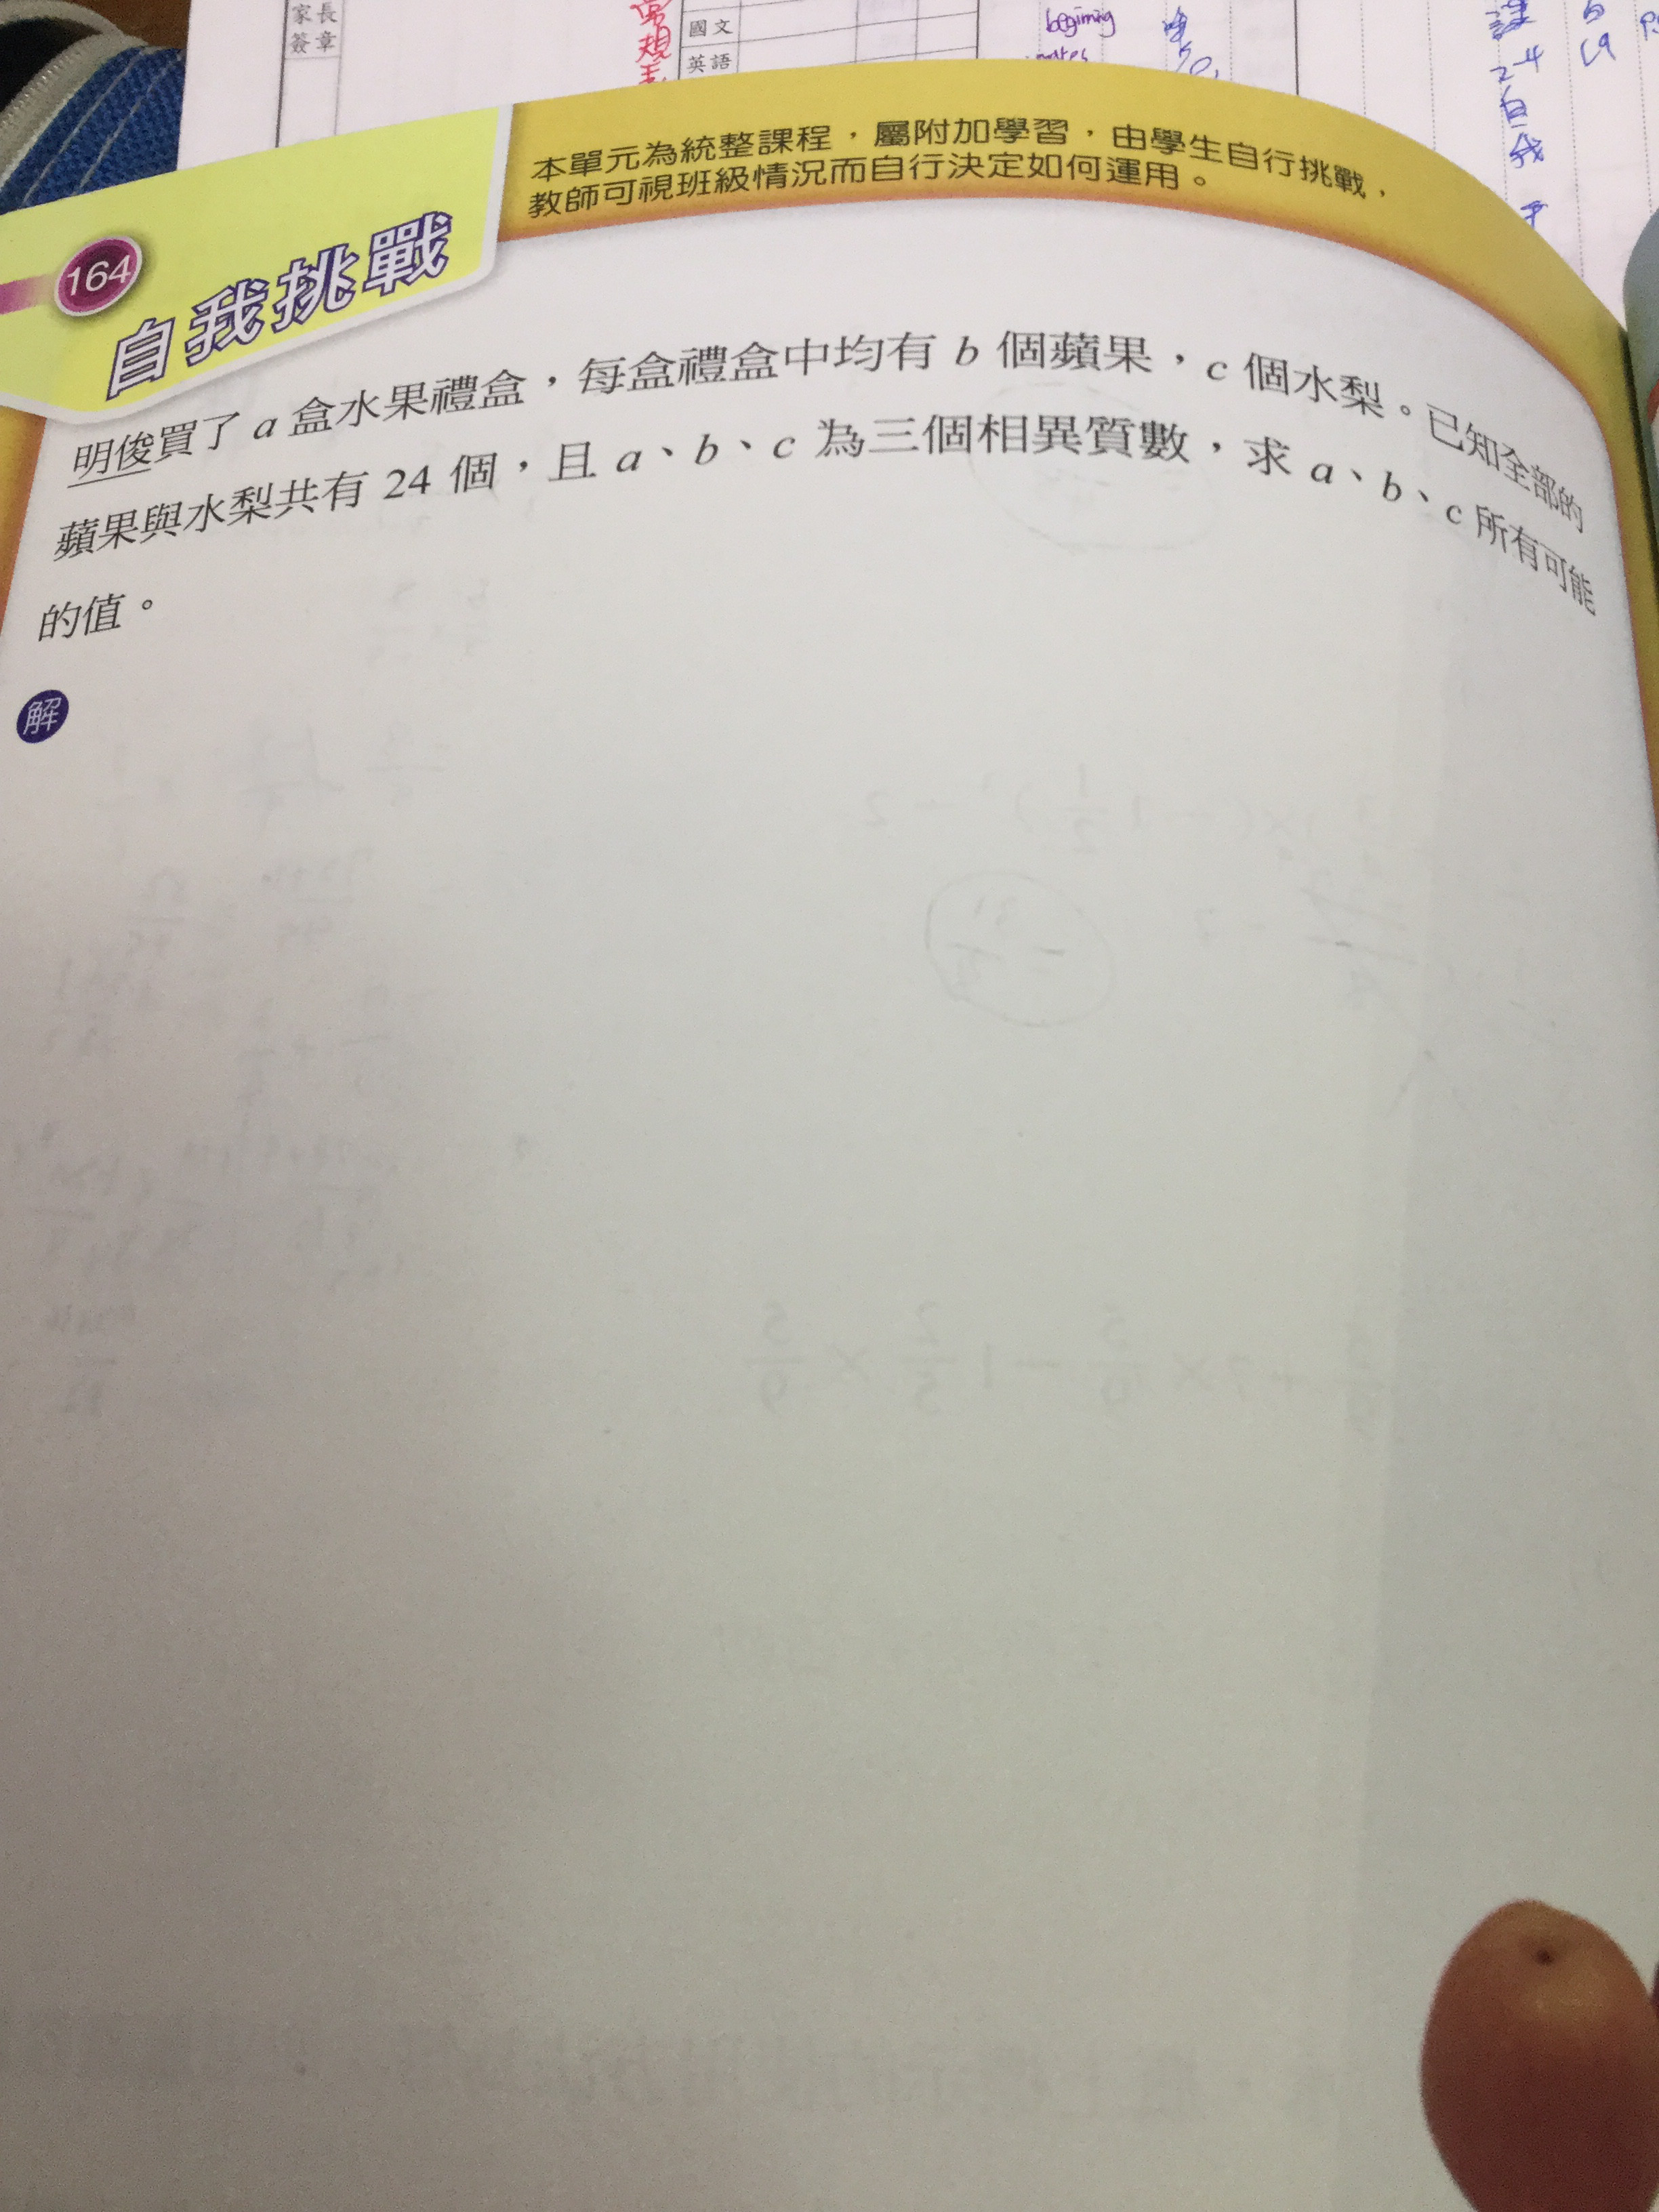 家長
簽章
國文
英語
begining
本單元為統整課程，屬附加學習，由學生自行挑戰，
教師可視班級情況而自行決定如何運用。
164
自我挑戰
明俊買了 a 盒水果禮盒，每盒禮盒中均有 b 個蘋果，c 個水梨。已知全部的
蘋果與水梨共有 24 個，且 a、b、c 為三個相異質數，求 a、b、c 所有可能
的值。
解